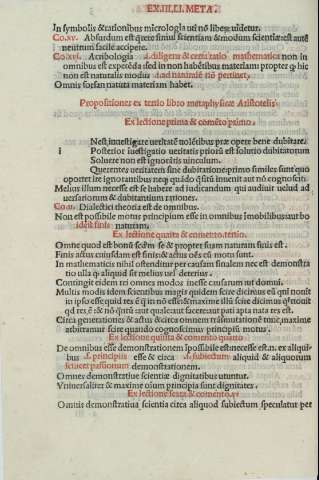 EX.IIII. META.
In symbolis & rationibus micrologia uti nõ libere uidetur.
Co.xv. Absurdum est q̃rere simul scientiam & modum scientiæ: est autẽ
neutrum facile accipere.
Co.xvi. Acribologia .i. diligens & certa ratio mathematica non in
omnibus est expetẽda sed in non habẽtibus materiam propter q̃ hic
non est naturalis modus .i. ad naturale nõ pertinet,
Omnis forsan natura materiam habet.
Propositiones ex tertio libro metaphysicæ Aristotelis.
Ex lectione prima & comẽto primo
Nest inuestigare ueritatẽ uolẽtibus præ opere bene dubitare.
Posterior inuestigatio ueritatis prioris est solutio dubitatorum
Soluere non est ignorãtis uinculum.
Querentes ueritatem sine dubitatione primo similes sunt quo
oportet ire ignorantibus neq; quãdo q̃sitũ inuenit aut nõ cognoscit.
Melius illum necesse est se habere ad iudicandum qui audiuit uelud ad
uersariorum & dubitantium rationes.
Dialectici theoria est de omnibus.
Non est possibile motus principium esse in omnibus ĩmobilibus aut bo
idest finis naturam.
Ex lectione quarta & comento tertio.
Omne quod est bonũ secdm se & propter suam naturam finis est.
Finis actus cuiusdam est finis & actus oẽs cũ motu sunt.
In mathematicis nihil ostenditur per causam finalem nec est demonstra
tio ulla q̃ aliquid sit melius uel deterius.
Contingit eidem rei omnes modos inesse causarum ut domui.
Multis modis idem scientibus magis quidem scire dicimus eũ qui nouit
in ipso esse quid res ẽ q̃ in nõ esse: & maxime illũ scire dicimus q̃ nouit
qd res ẽ & nõ q̃nta aut qualis aut facere aut pati apta nata res est.
Circa generationes & actus & circa omnem trãsmutationẽ tunc maxime
arbitramur scire quando cognoscimus principiũ motus.
Ex lectione quinta & comento quarto
De omnibus esse demonstrationem ĩpossibile est: necesse est.n. ex aliqui
bus .s. principiis esse & circa .s. subiectum aliquid & aliquorum
scilicet passionum demonstrationem.
Omnes demonstratiuæ scientiæ dignitatibus utuntur.
Vniuersaliter & maxime oĩum principia sunt dignitates.
Ex lectione sexta & comento.vi
Omnis demonstratiua scientia circa aliquod subiectum speculatur per